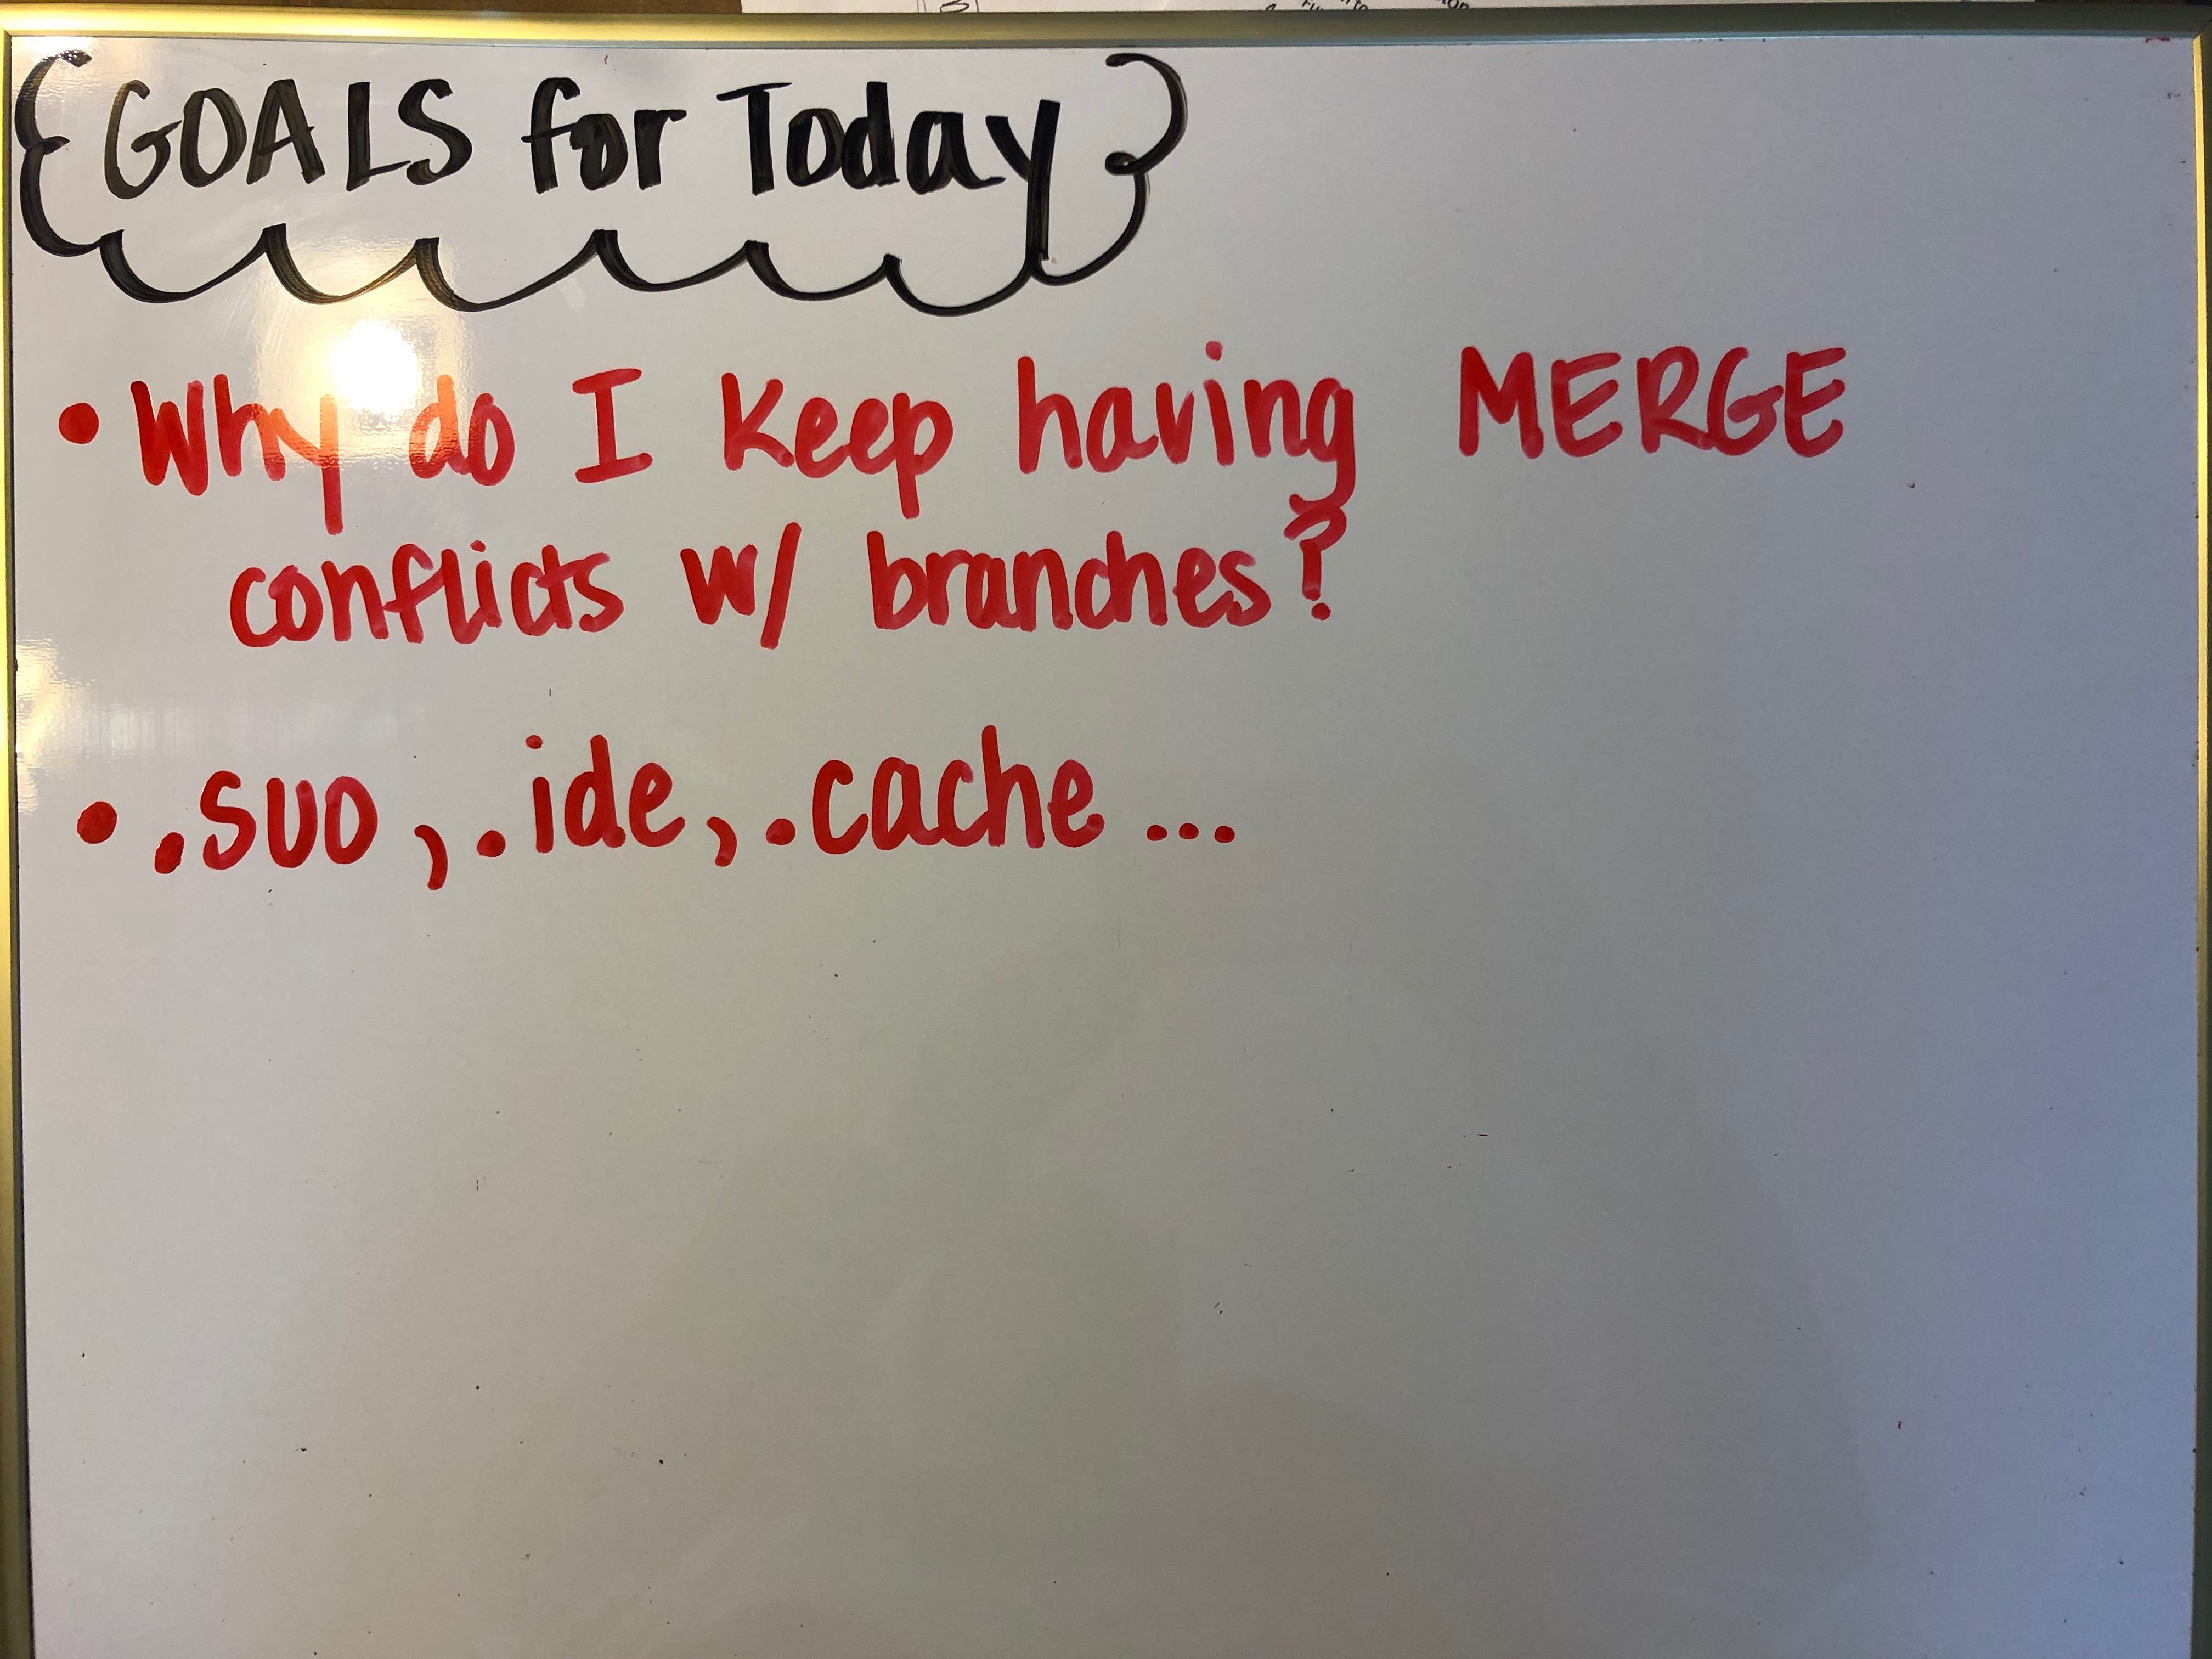 GOALS for Today
• Why do I keep having MERGE
conflicts w/ branches?
• .suo, .ide, .cache ...